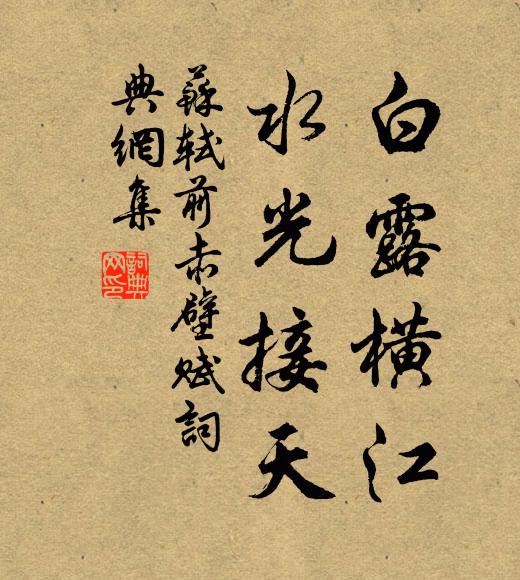 白露橫江
水光接天
蘇軾前赤壁賦詞
典網集
詞典
网印